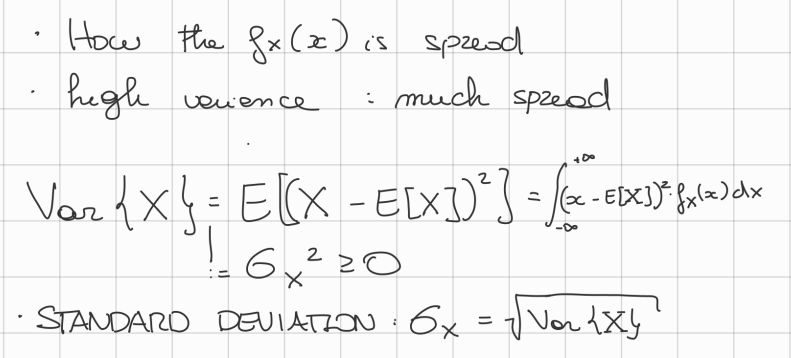 · How the fx(x) is spread
· high variance : much spread
Var{X} = E[(X - E[X])²] = ∫_{-∞}^{+∞} (x - E[X])² · fx(x) dx
:= σx² ≥ 0
· STANDARD DEVIATION : σx = √Var{X}